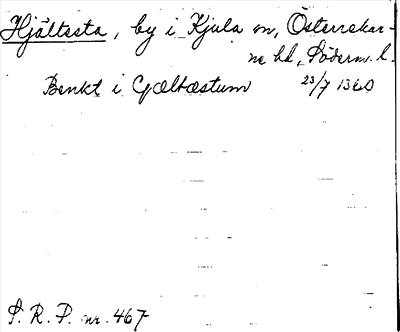 Hjältesta, by i Kjula sn, Österrekar-
ne hd, Söderm. l.
Benkt i Gælbæstum 23/7 1360
S. R. P. nr. 467